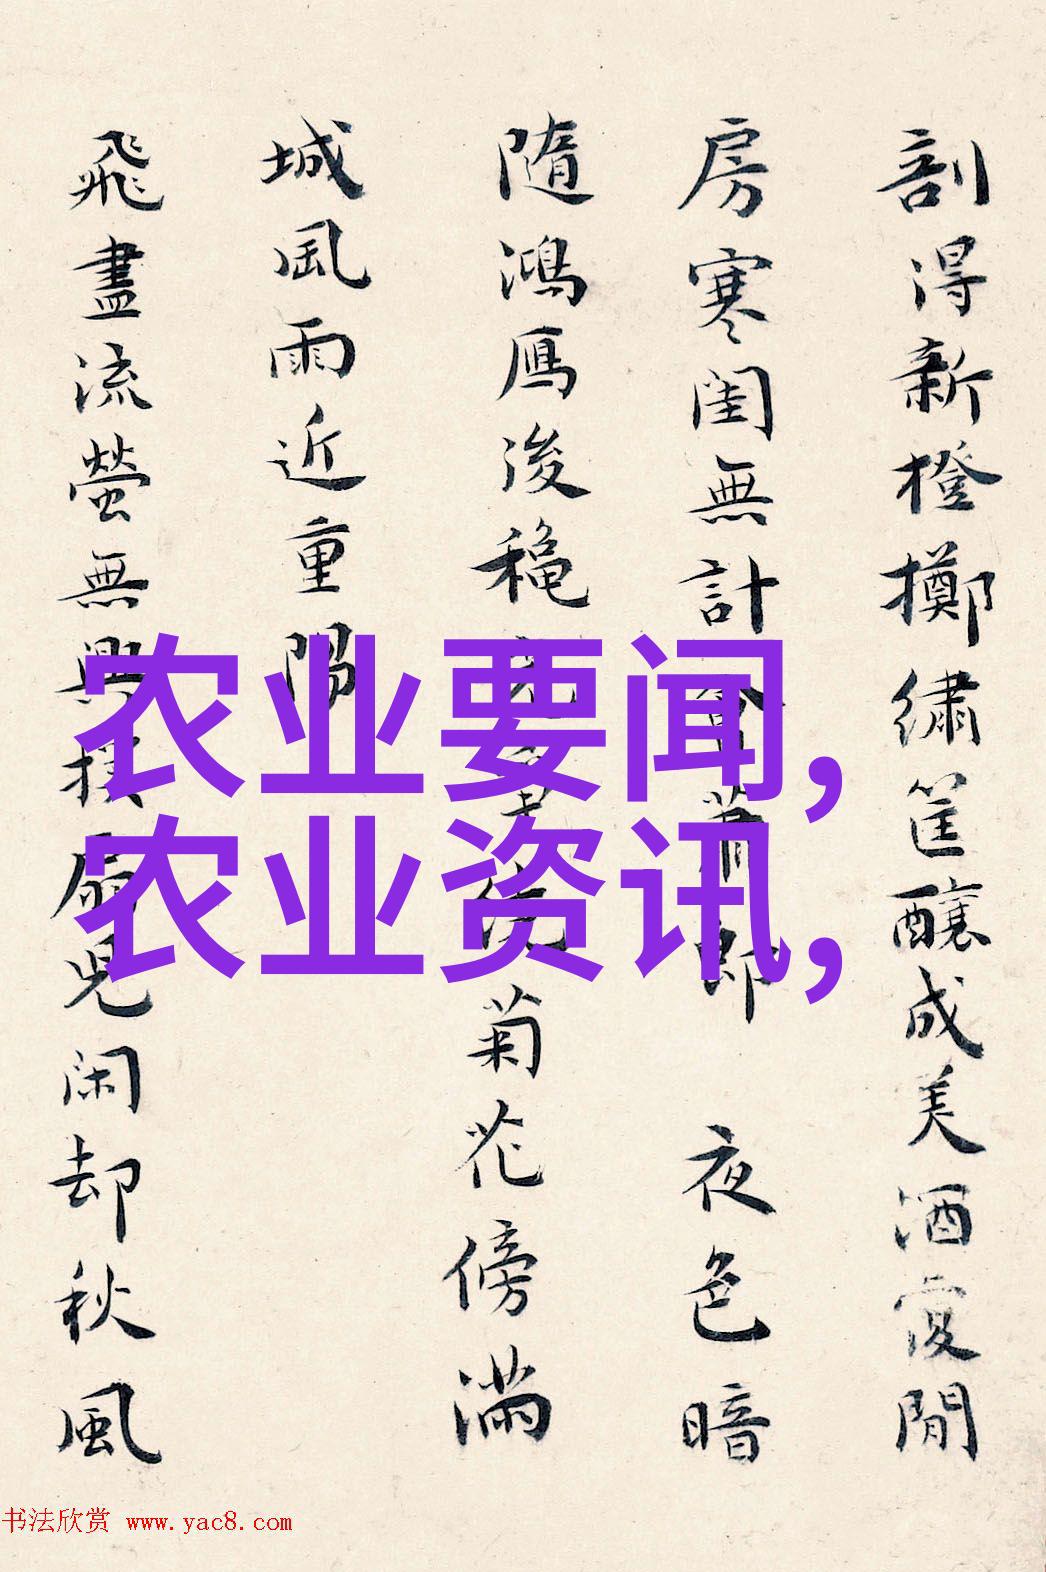 剖得新橙擲繡筐釀成美酒愛閒
房寒閨無計蕭郎 夜色暗
隨鴻鴈後穐菊花傍滿
城風雨近重陽
飛盡流螢無興撲扇兒閑却秋風
农业要闻,
农业资讯,
书法欣赏 www.yac8.com